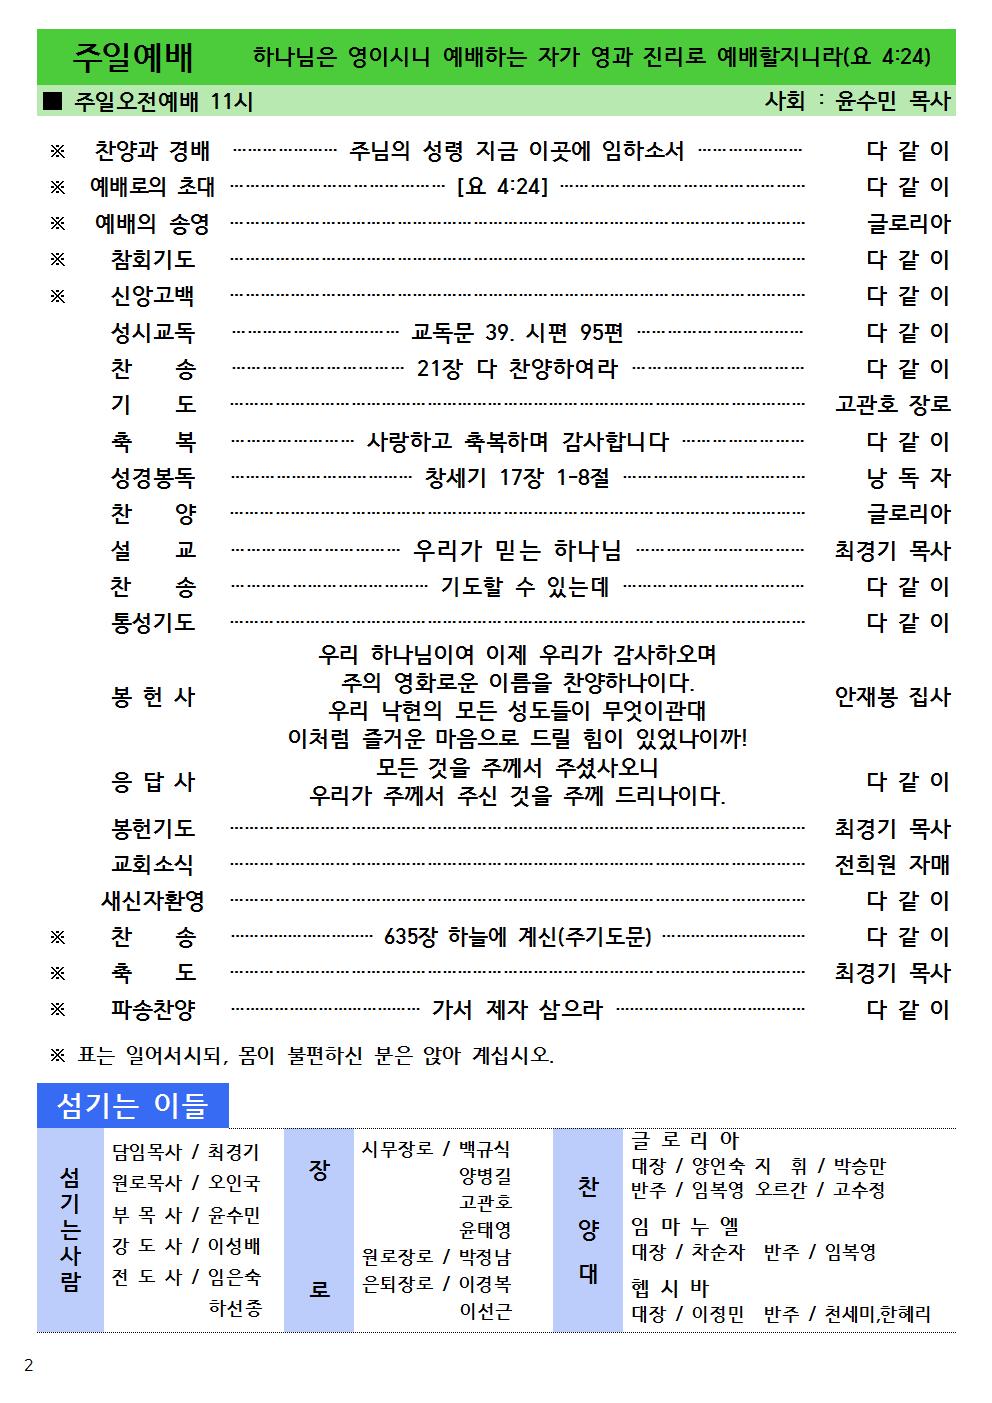 주일예배 하나님은 영이시니 예배하는 자가 영과 진리로 예배할지니라(요 4:24)
■ 주일오전예배 11시 사회 : 윤수민 목사
※ 찬양과 경배 ………………… 주님의 성령 지금 이곳에 임하소서 ………………… 다 같 이
※ 예배로의 초대 …………………………………… [요 4:24] ………………………………………… 다 같 이
※ 예배의 송영 ………………………………………………………………………………… 글로리아
※ 참회기도 ………………………………………………………………………………… 다 같 이
※ 신앙고백 ………………………………………………………………………………… 다 같 이
성시교독 …………………………… 교독문 39. 시편 95편 …………………………… 다 같 이
찬 송 …………………………… 21장 다 찬양하여라 …………………………… 다 같 이
기 도 ………………………………………………………………………………… 고관호 장로
축 복 …………………… 사랑하고 축복하며 감사합니다 …………………… 다 같 이
성경봉독 ……………………………… 창세기 17장 1-8절 ……………………………… 낭 독 자
찬 양 ………………………………………………………………………………… 글로리아
설 교 …………………………… 우리가 믿는 하나님 …………………………… 최경기 목사
찬 송 ………………………………… 기도할 수 있는데 ……………………………… 다 같 이
통성기도 ………………………………………………………………………………… 다 같 이
우리 하나님이여 이제 우리가 감사하오며
주의 영화로운 이름을 찬양하나이다.
봉 헌 사 안재봉 집사
우리 낙현의 모든 성도들이 무엇이관대
이처럼 즐거운 마음으로 드릴 힘이 있었나이까!
모든 것을 주께서 주셨사오니
응 답 사 다 같 이
우리가 주께서 주신 것을 주께 드리나이다.
봉헌기도 ………………………………………………………………………………… 최경기 목사
교회소식 ………………………………………………………………………………… 전희원 자매
새신자환영 ………………………………………………………………………………… 다 같 이
※ 찬 송 ………………………… 635장 하늘에 계신(주기도문) ………………………… 다 같 이
※ 축 도 ………………………………………………………………………………… 최경기 목사
※ 파송찬양 ………………………………… 가서 제자 삼으라 ………………………………… 다 같 이
※ 표는 일어서시되, 몸이 불편하신 분은 앉아 계십시오.
섬기는 이들
섬기는사람
담임목사 / 최경기
원로목사 / 오인국
부 목 사 / 윤수민
강 도 사 / 이성배
전 도 사 / 임은숙
하선종
장 로
시무장로 / 백규식
양병길
고관호
윤태영
원로장로 / 박정남
은퇴장로 / 이경복
이선근
찬양대
글 로 리 아
대장 / 양언숙 지 휘 / 박승만
반주 / 임복영 오르간 / 고수정
임 마 누 엘
대장 / 차순자 반주 / 임복영
헵 시 바
대장 / 이정민 반주 / 천세미,한혜리
2